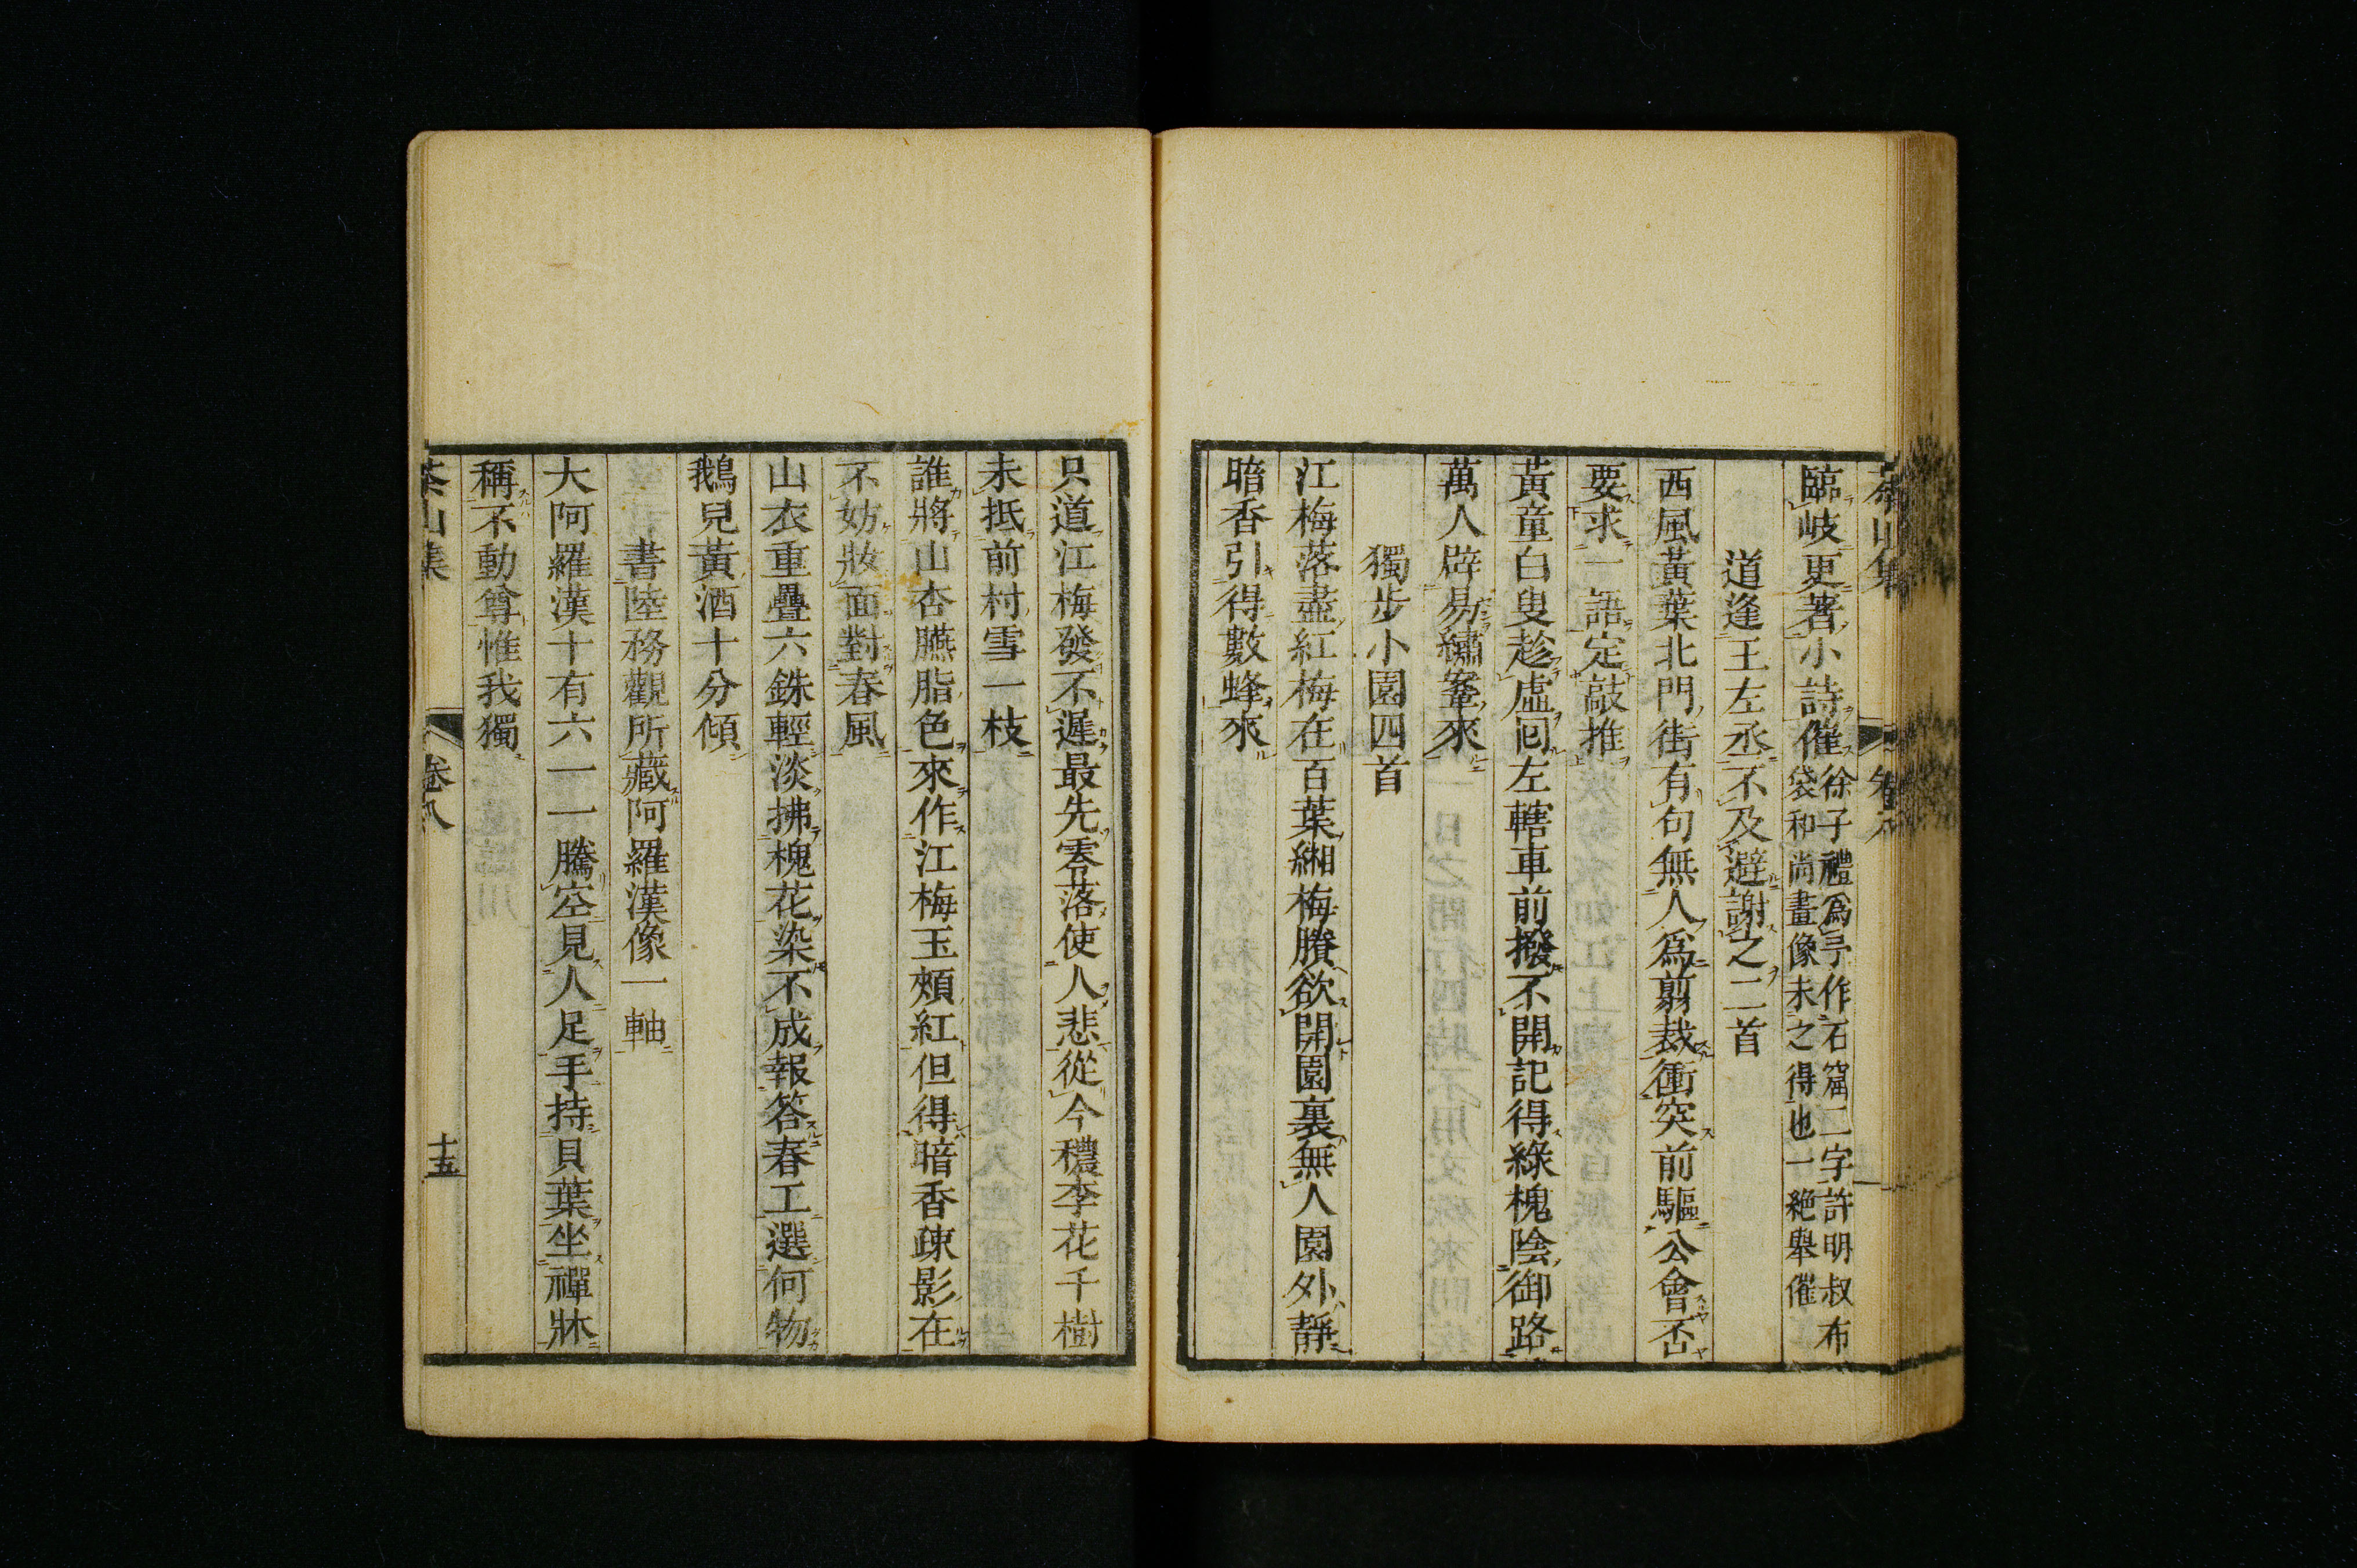 茶山集 卷八
臨岐更著小詩催 徐子禮爲亭作石窟二字許明叔布
袋和尚畫像未之得也一絶舉催
道逢王左丞不及避謝之二首
西風黃葉北門街有句無人爲剪裁衝突前驅公會否
要求一語定敲推
黃童白叟趁虛回左轄車前撥不開記得綠槐陰御路
萬人辟易繡鞌來
獨步小園四首
江梅落盡紅梅在百葉緗梅賸欲開園裏無人園外靜
暗香引得數蜂來
只道江梅發不遲最先零落使人悲從今穠李花千樹
未抵前村雪一枝
誰將山杏臙脂色來作江梅玉頰紅但得暗香疎影在
不妨妝面對春風
山衣重疊六銖輕淡拂槐花染不成報答春工選何物
鵝兒黃酒十分傾
書陸務觀所藏阿羅漢像一軸
大阿羅漢十有六一一騰空見人足手持貝葉坐禪牀
稱不動尊惟我獨
茶山集 卷八 十五